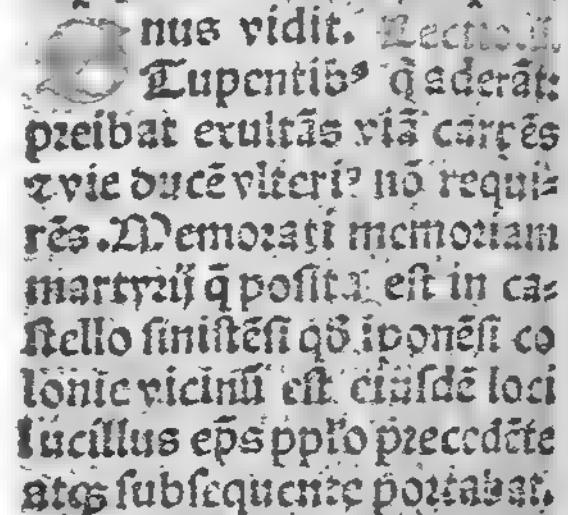 nus vidit. Lectio.ij.
Stupentibꝰ q̃ aderāt:
preibat exultãs viã carẽs
⁊ vie ducẽ vlteriꝰ nõ requi⸗
rẽs. Memorati memoriam
martyrij q̃ posita est in ca⸗
stello sinistẽsi qđ iponẽsi co
lonie vicinũ est eiusdẽ loci
lucillus ep̃s pp̃lo precedẽte
atqꝫ subsequente portabat.